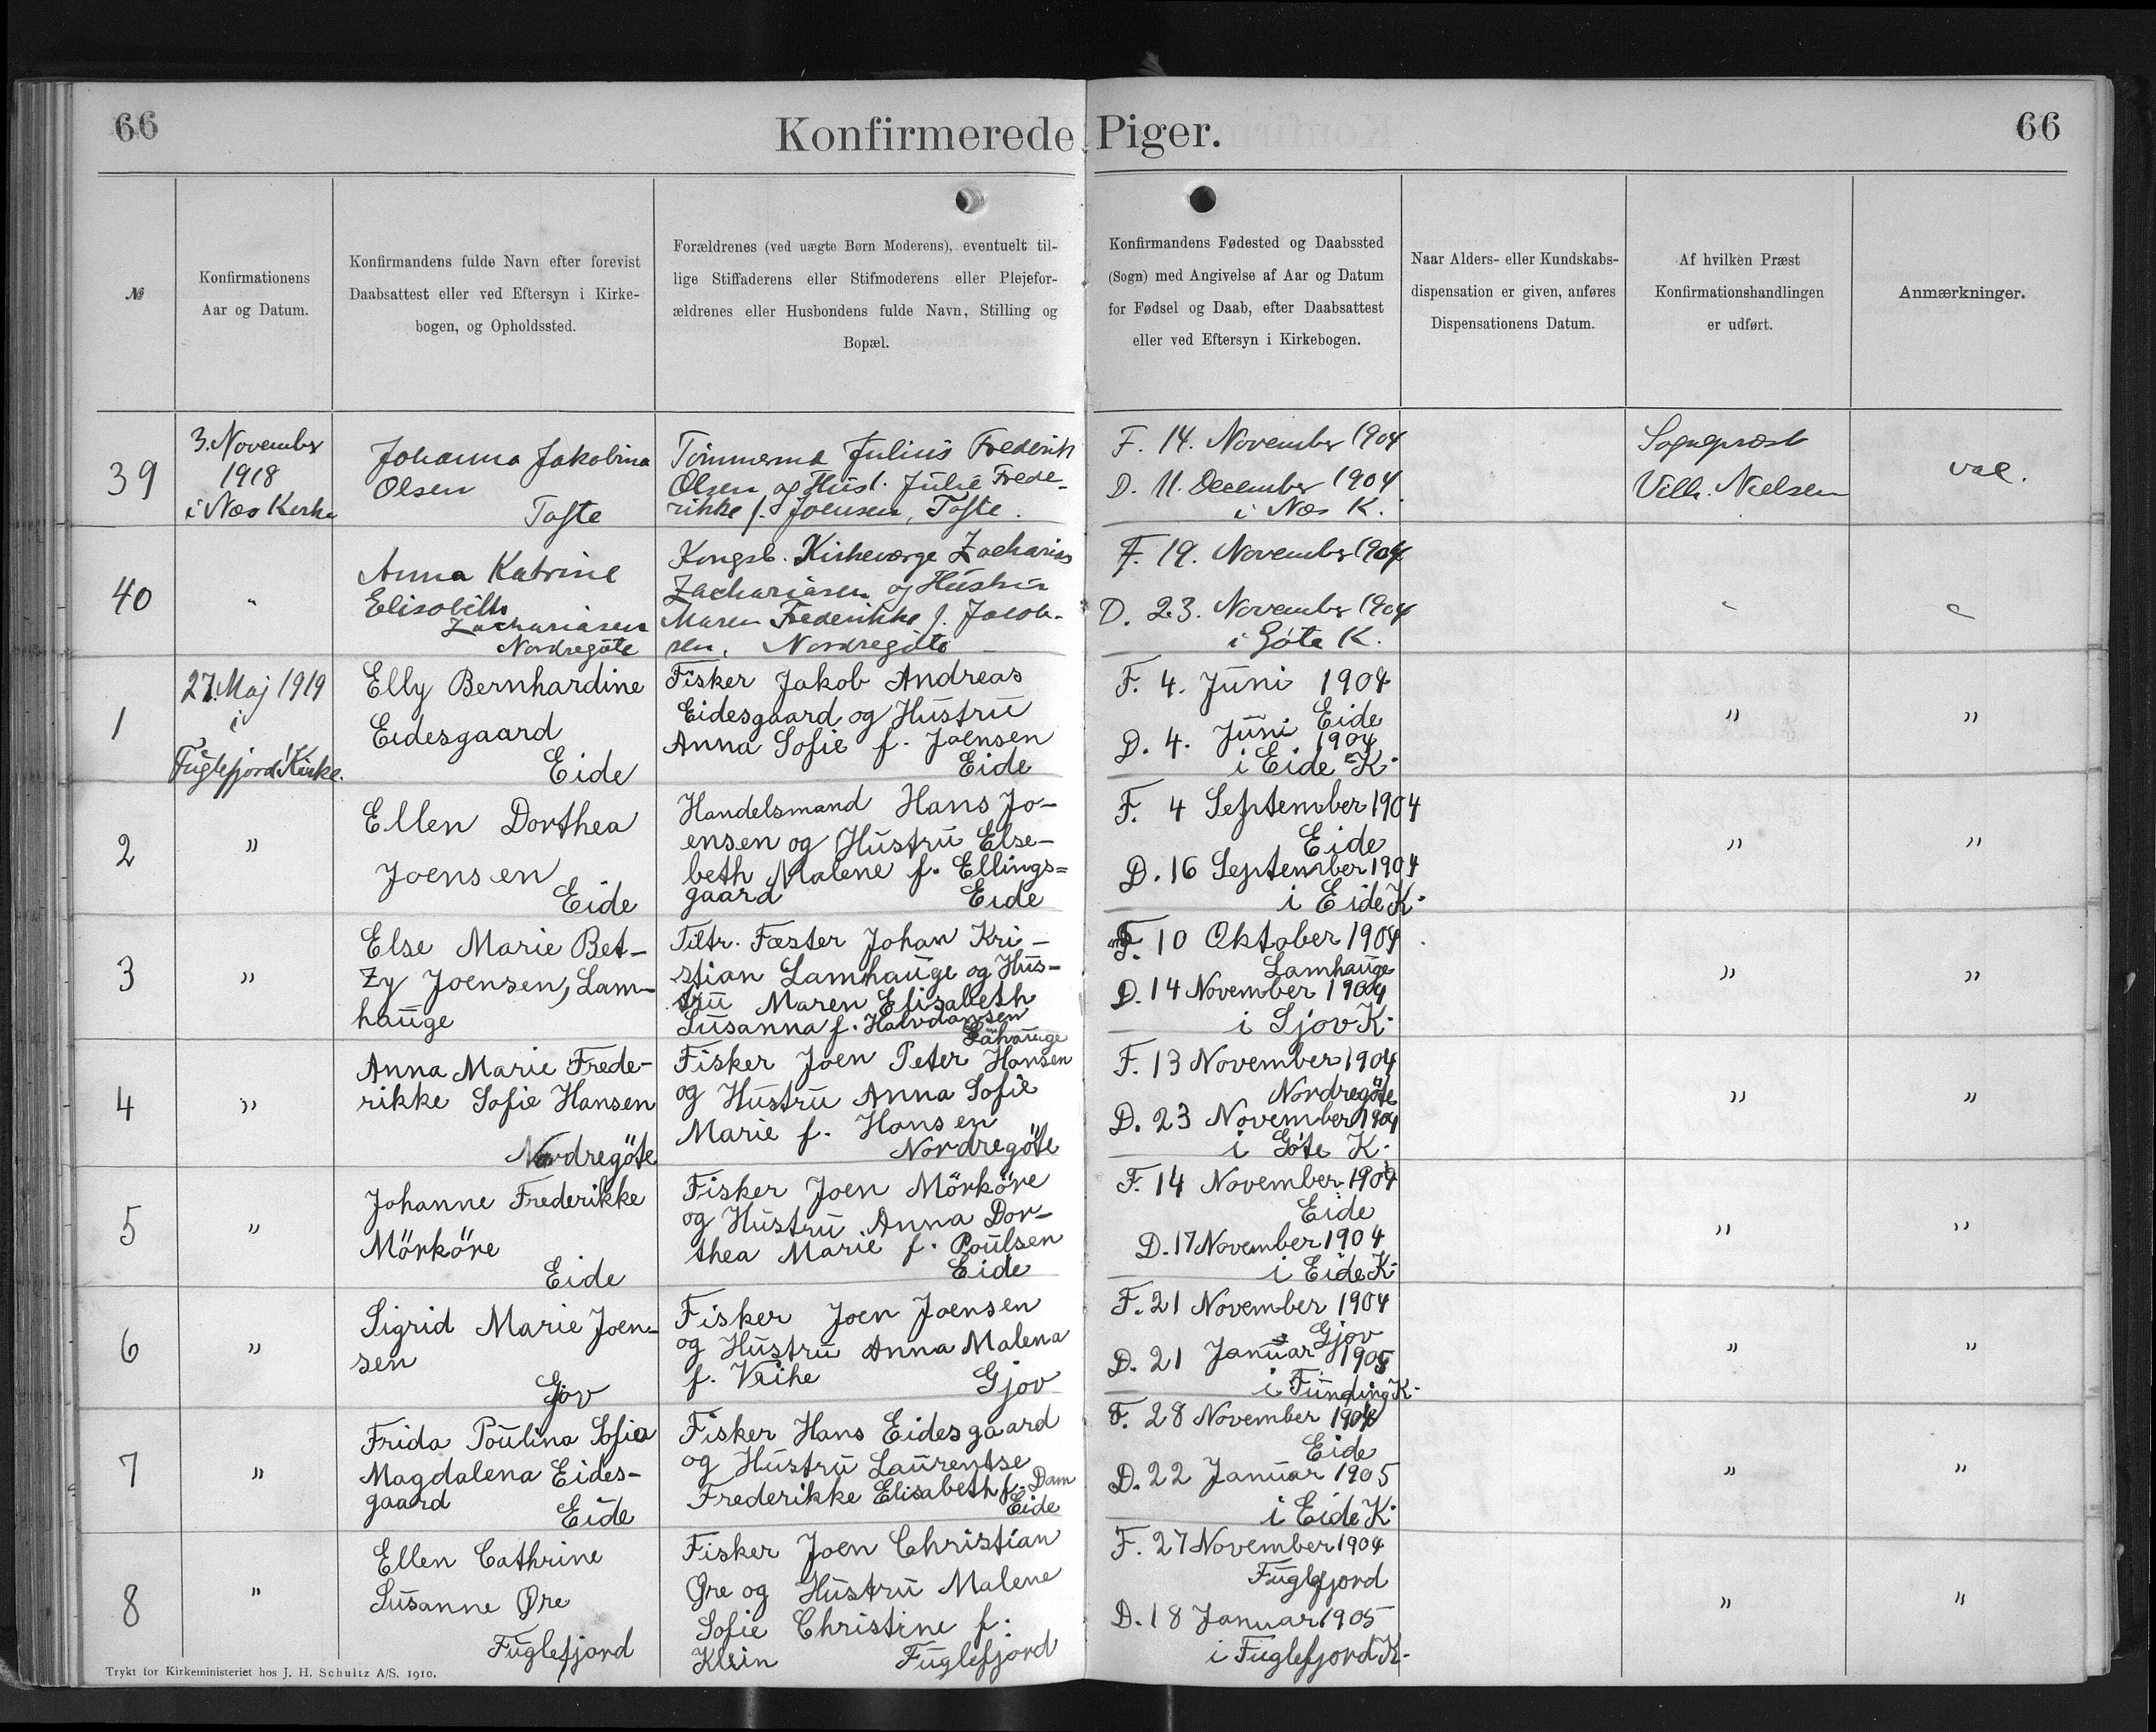 66
Konfirmerede Piger.
66
№
Konfirmationens
Aar og Datum.
Konfirmandens fulde Navn efter forevist
Daabsattest eller ved Eftersyn i Kirke-
bogen, og Opholdssted.
Forældrenes (ved uægte Børn Moderens), eventuelt til-
lige Stiffaderens eller Stifmoderens eller Plejefor-
ældrenes eller Husbondens fulde Navn, Stilling og
Bopæl.
Konfirmandens Fødested og Daabssted
(Sogn) med Angivelse af Aar og Datum
for Fødsel og Daab, efter Daabsattest
eller ved Eftersyn i Kirkebogen.
Naar Alders- eller Kundskabs-
dispensation er given, anføres
Dispensationens Datum.
Af hvilken Præst
Konfirmationshandlingen
er udført.
Anmærkninger.
39
3. November
1918
i Næs Kirke
Johanna Jakobina
Olsen
Tofte
Tömmermd Julius Frederik
Olsen og Hust. Julie Frede-
rikke f. Joensen, Tofte.
F. 14. November 1904
D. 11. December 1904
i Næs K.
Sognepræst
Vilh. Nielsen
vac.
40
"
Anna Katrine
Elisabeth
Zachariasen
Nordregöte
Kongsb. Kirkeværge Zacharias
Zachariasen og Hustru
Maren Frederikke f. Jacob-
sen, Nordregöte
F. 19. November 1904
D. 23. November 1904
i Göte K.
"
"
1
27. Maj 1919
i
Fuglefjord Kirke.
Elly Bernhardine
Eidesgaard
Eide
Fisker Jakob Andreas
Eidesgaard og Hustru
Anna Sofie f. Joensen
Eide
F. 4. Juni 1904
Eide
D. 4. Juni 1904
i Eide K.
"
"
2
"
Ellen Dorthea
Joensen
Eide
Handelsmand Hans Jo-
ensen og Hustru Else-
beth Malene f. Ellings=
gaard Eide
F. 4 September 1904
Eide
D. 16 September 1904
i Eide K.
"
"
3
"
Else Marie Bet-
zy Joensen, Lam-
hauge
Tiltr. Fæster Johan Kri-
stian Lamhauge og Hus-
tru Maren Elisabeth
Susanna f. Halvdansen
Lamhauge
F. 10 Oktober 1904
Lamhauge
D. 14 November 1904
i Sjov K.
"
"
4
"
Anna Marie Frede-
rikke Sofie Hansen
Nordregöte
Fisker Joen Peter Hansen
og Hustru Anna Sofie
Marie f. Hansen
Nordregöte
F. 13 November 1904
Nordregöte
D. 23 November 1904
i Göte K.
"
"
5
"
Johanne Frederikke
Mörköre
Eide
Fisker Joen Mörköre
og Hustru Anna Dor-
thea Marie f. Poulsen
Eide
F. 14 November 1904
Eide
D. 17 November 1904
i Eide K.
"
"
6
"
Sigrid Marie Joen-
sen
Gjov
Fisker Joen Joensen
og Hustru Anna Malena
f. Vrihe Gjov
F. 21 November 1904
Gjov
D. 21 Januar 1905
i Funding K.
"
"
7
"
Frida Poulina Sofia
Magdalena Eides-
gaard
Eide
Fisker Hans Eidesgaard
og Hustru Laurentse
Frederikke Elisabeth f. Dam
Eide
F. 28 November 1904
Eide
D. 22 Januar 1905
i Eide K.
"
"
8
"
Ellen Cathrine
Susanne Øre
Fuglefjord
Fisker Joen Christian
Øre og Hustru Malene
Sofie Christine f.
Klein Fuglefjord
F. 27 November 1904
Fuglefjord
D. 18 Januar 1905
i Fuglefjord K.
"
"
Trykt for Kirkeministeriet hos J. H. Schultz A/S. 1910.